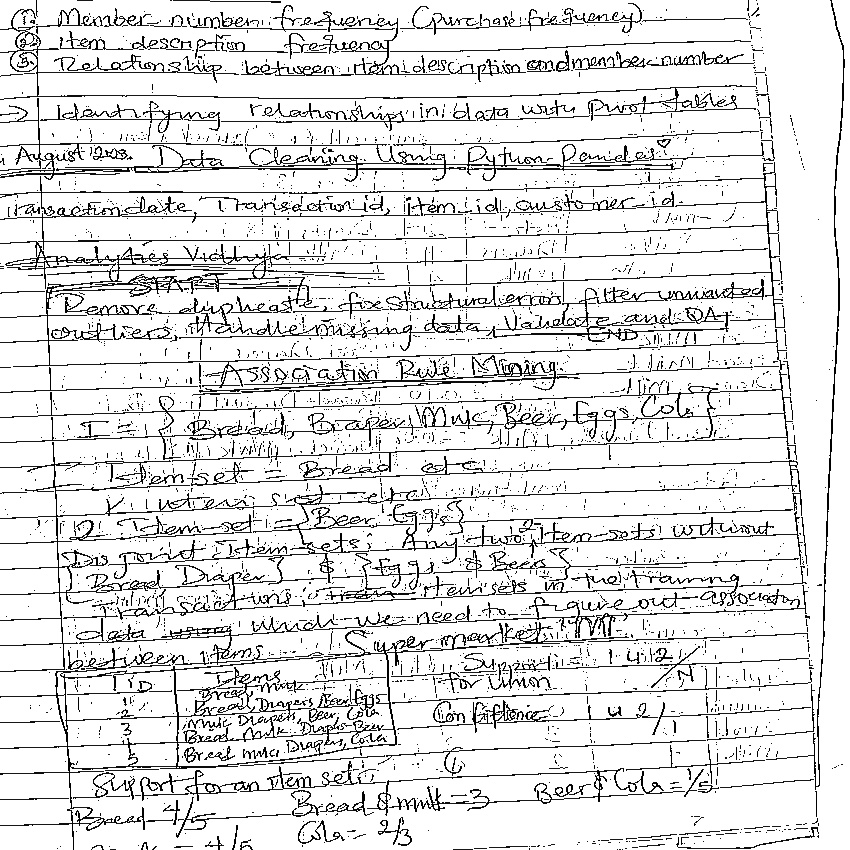 ① Member number frequency (purchase frequency)
② Item description frequency
③ Relationship between item description and member number
→ Identifying relationships in data with pivot tables
August Data Cleaning Using Python Pandas
Transaction date, Transaction id, item id, customer id
Analytics Vidhya
START
Remove duplicate, fix structural error, filter unwanted
outliers, Handle missing data, Validate and QA
END
Association Rule Mining
I = { Bread, Diaper, Milk, Beer, Eggs, Cola }
Itemset = Bread etc
2 Item-set = {Beer Eggs}
Disjoint Item-sets: Any two item-sets without
{Bread Diaper} & {Eggs & Beer}
Transactions: itemsets in the training
data which we need to figure out association
between items Supermarket
TID Items Support = 1 u 2/N
1 Bread, Milk for Union
2 Bread, Diapers, Beer, Eggs
3 Milk Diapers, Beer, Cola Confidence u 2/1
4 Bread Milk Diapers Beer
5 Bread Milk, Diapers, Cola
Support for an item set:
Bread 4/5 Bread & milk = 3 Beer & Cola = 1/5
Cola = 2/3
= 4/5